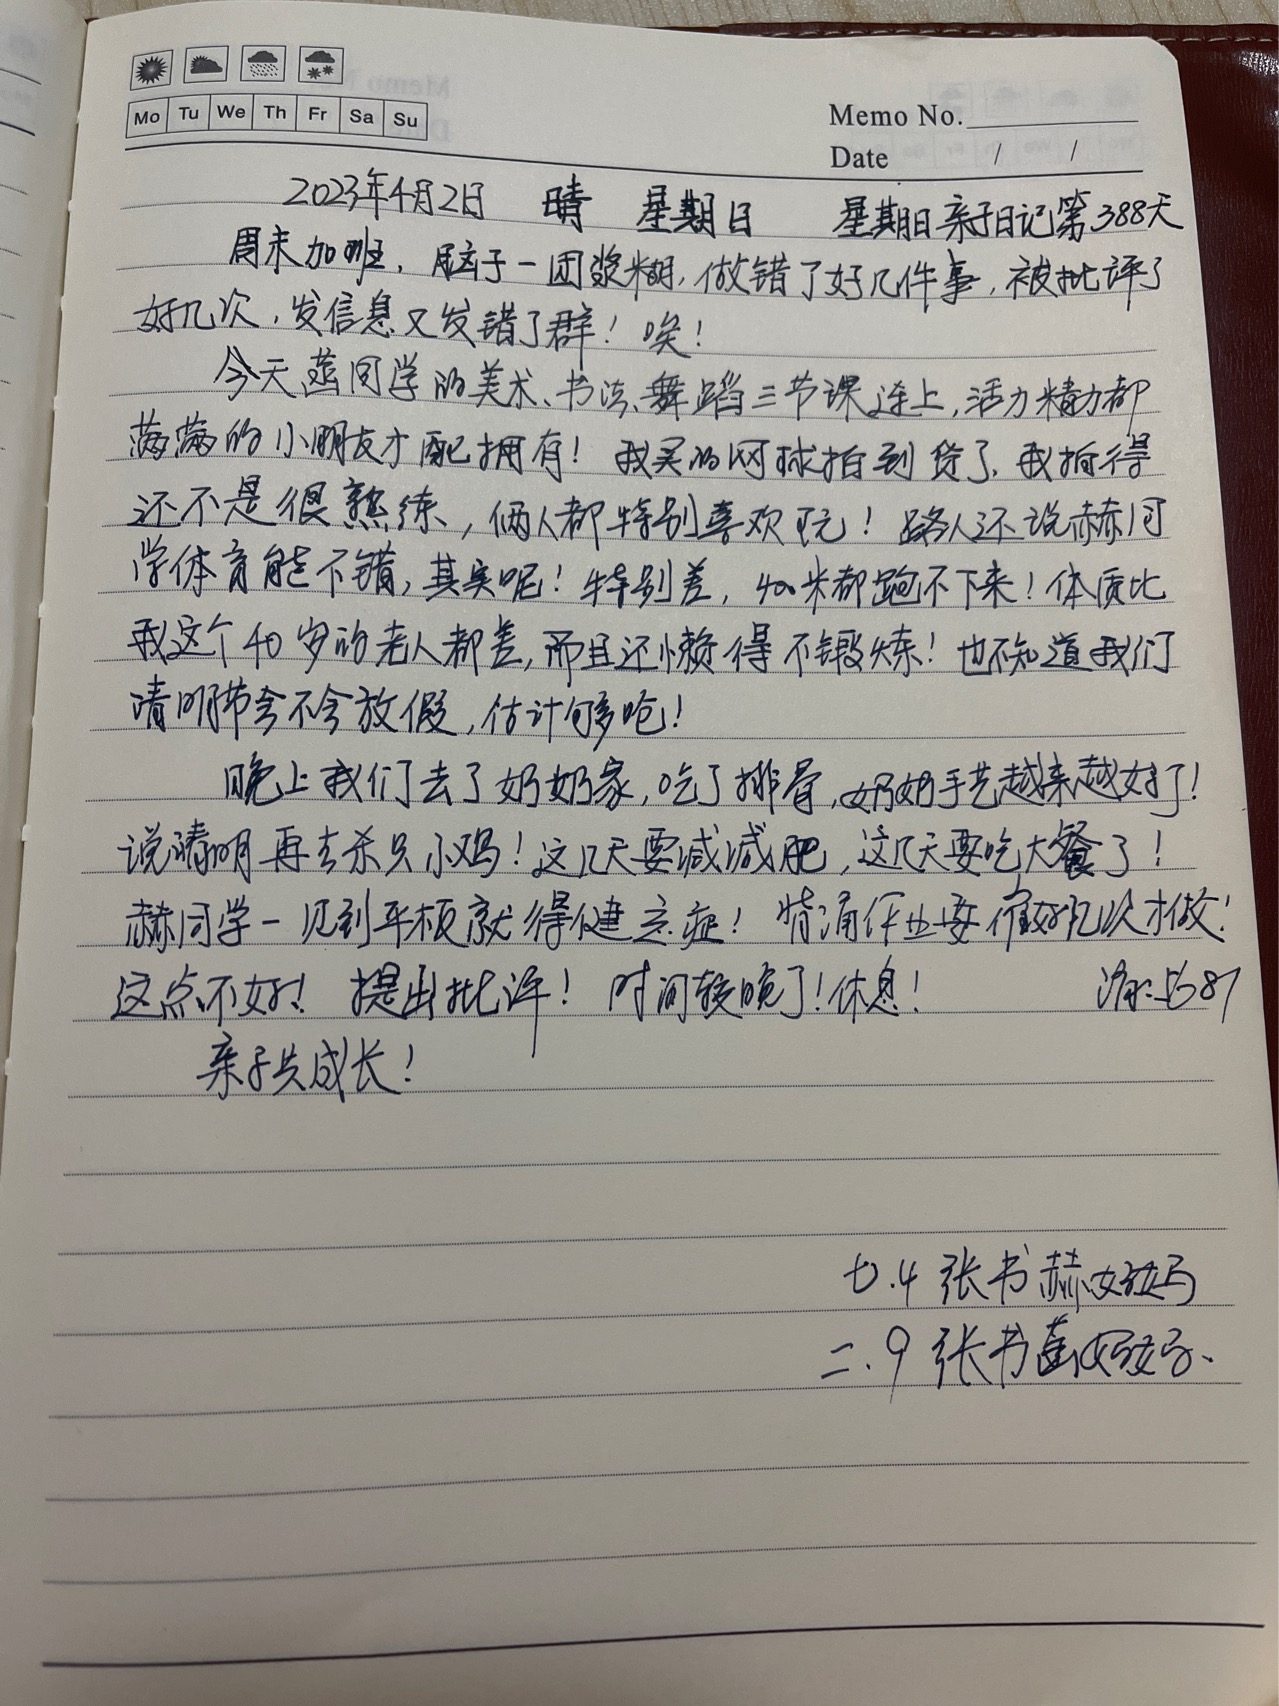 Mo Tu We Th Fr Sa Su
Memo No.
Date / /
2023年4月2日 晴 星期日 星期日亲子日记第388天
周末加班，脑子一团浆糊，做错了好几件事，被批评了
好几次，发信息又发错了群！唉！
今天菡同学的美术、书法、舞蹈三节课连上，活力精力都
满满的小朋友才配拥有！我买的网球拍到货了，我拍得
还不是很熟练，俩人都特别喜欢玩！路人还说赫同
学体育能不错，其实呢！特别差，400米都跑不下来！体质比
我这个40岁的老人都差，而且还懒得不锻炼！也不知道我们
清明节会不会放假，估计够呛！
晚上我们去了奶奶家，吃了排骨，奶奶手艺越来越好了！
说清明再去杀只小鸡！这几天要减减肥，这几天要吃大餐了！
赫同学一见到平板就得健忘症！背诵作业要催好几次才做！
这点不好！提出批评！时间较晚了！休息！
亲子共成长！
七.4 张书赫妈妈
二.9 张书菡妈妈.